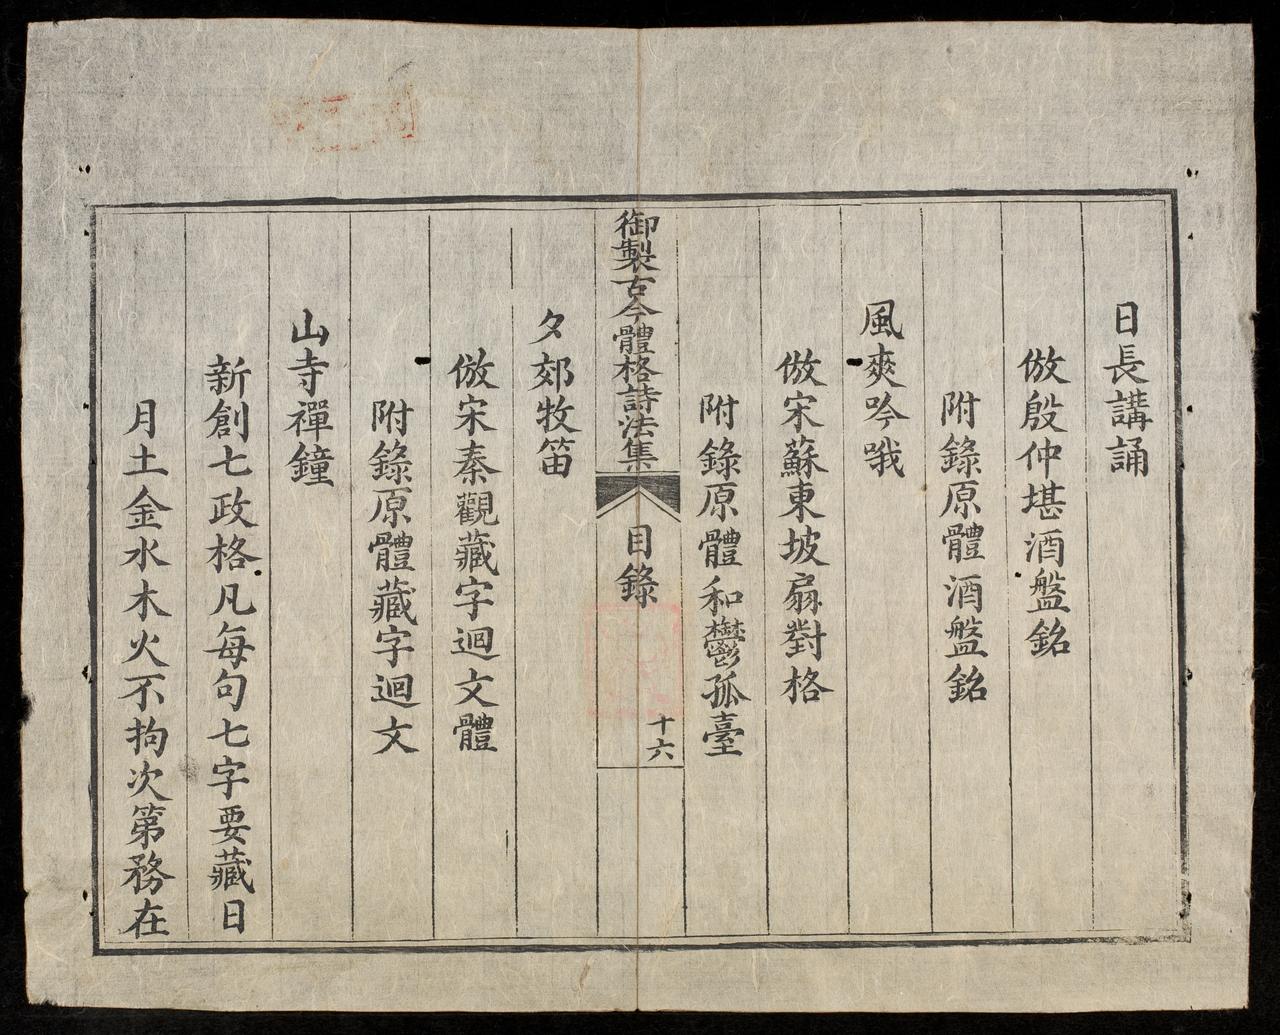 日長講誦
倣殷仲堪酒盤銘
附錄原體酒盤銘
風爽吟哦
倣宋蘇東坡扇對格
附錄原體和鬱孤臺
御製古今體格詩法集
目錄
十六
夕郊牧笛
倣宋秦觀藏字迴文體
附錄原體藏字迴文
山寺禪鐘
新創七政格凡每句七字要藏日
月土金水木火不拘次第務在